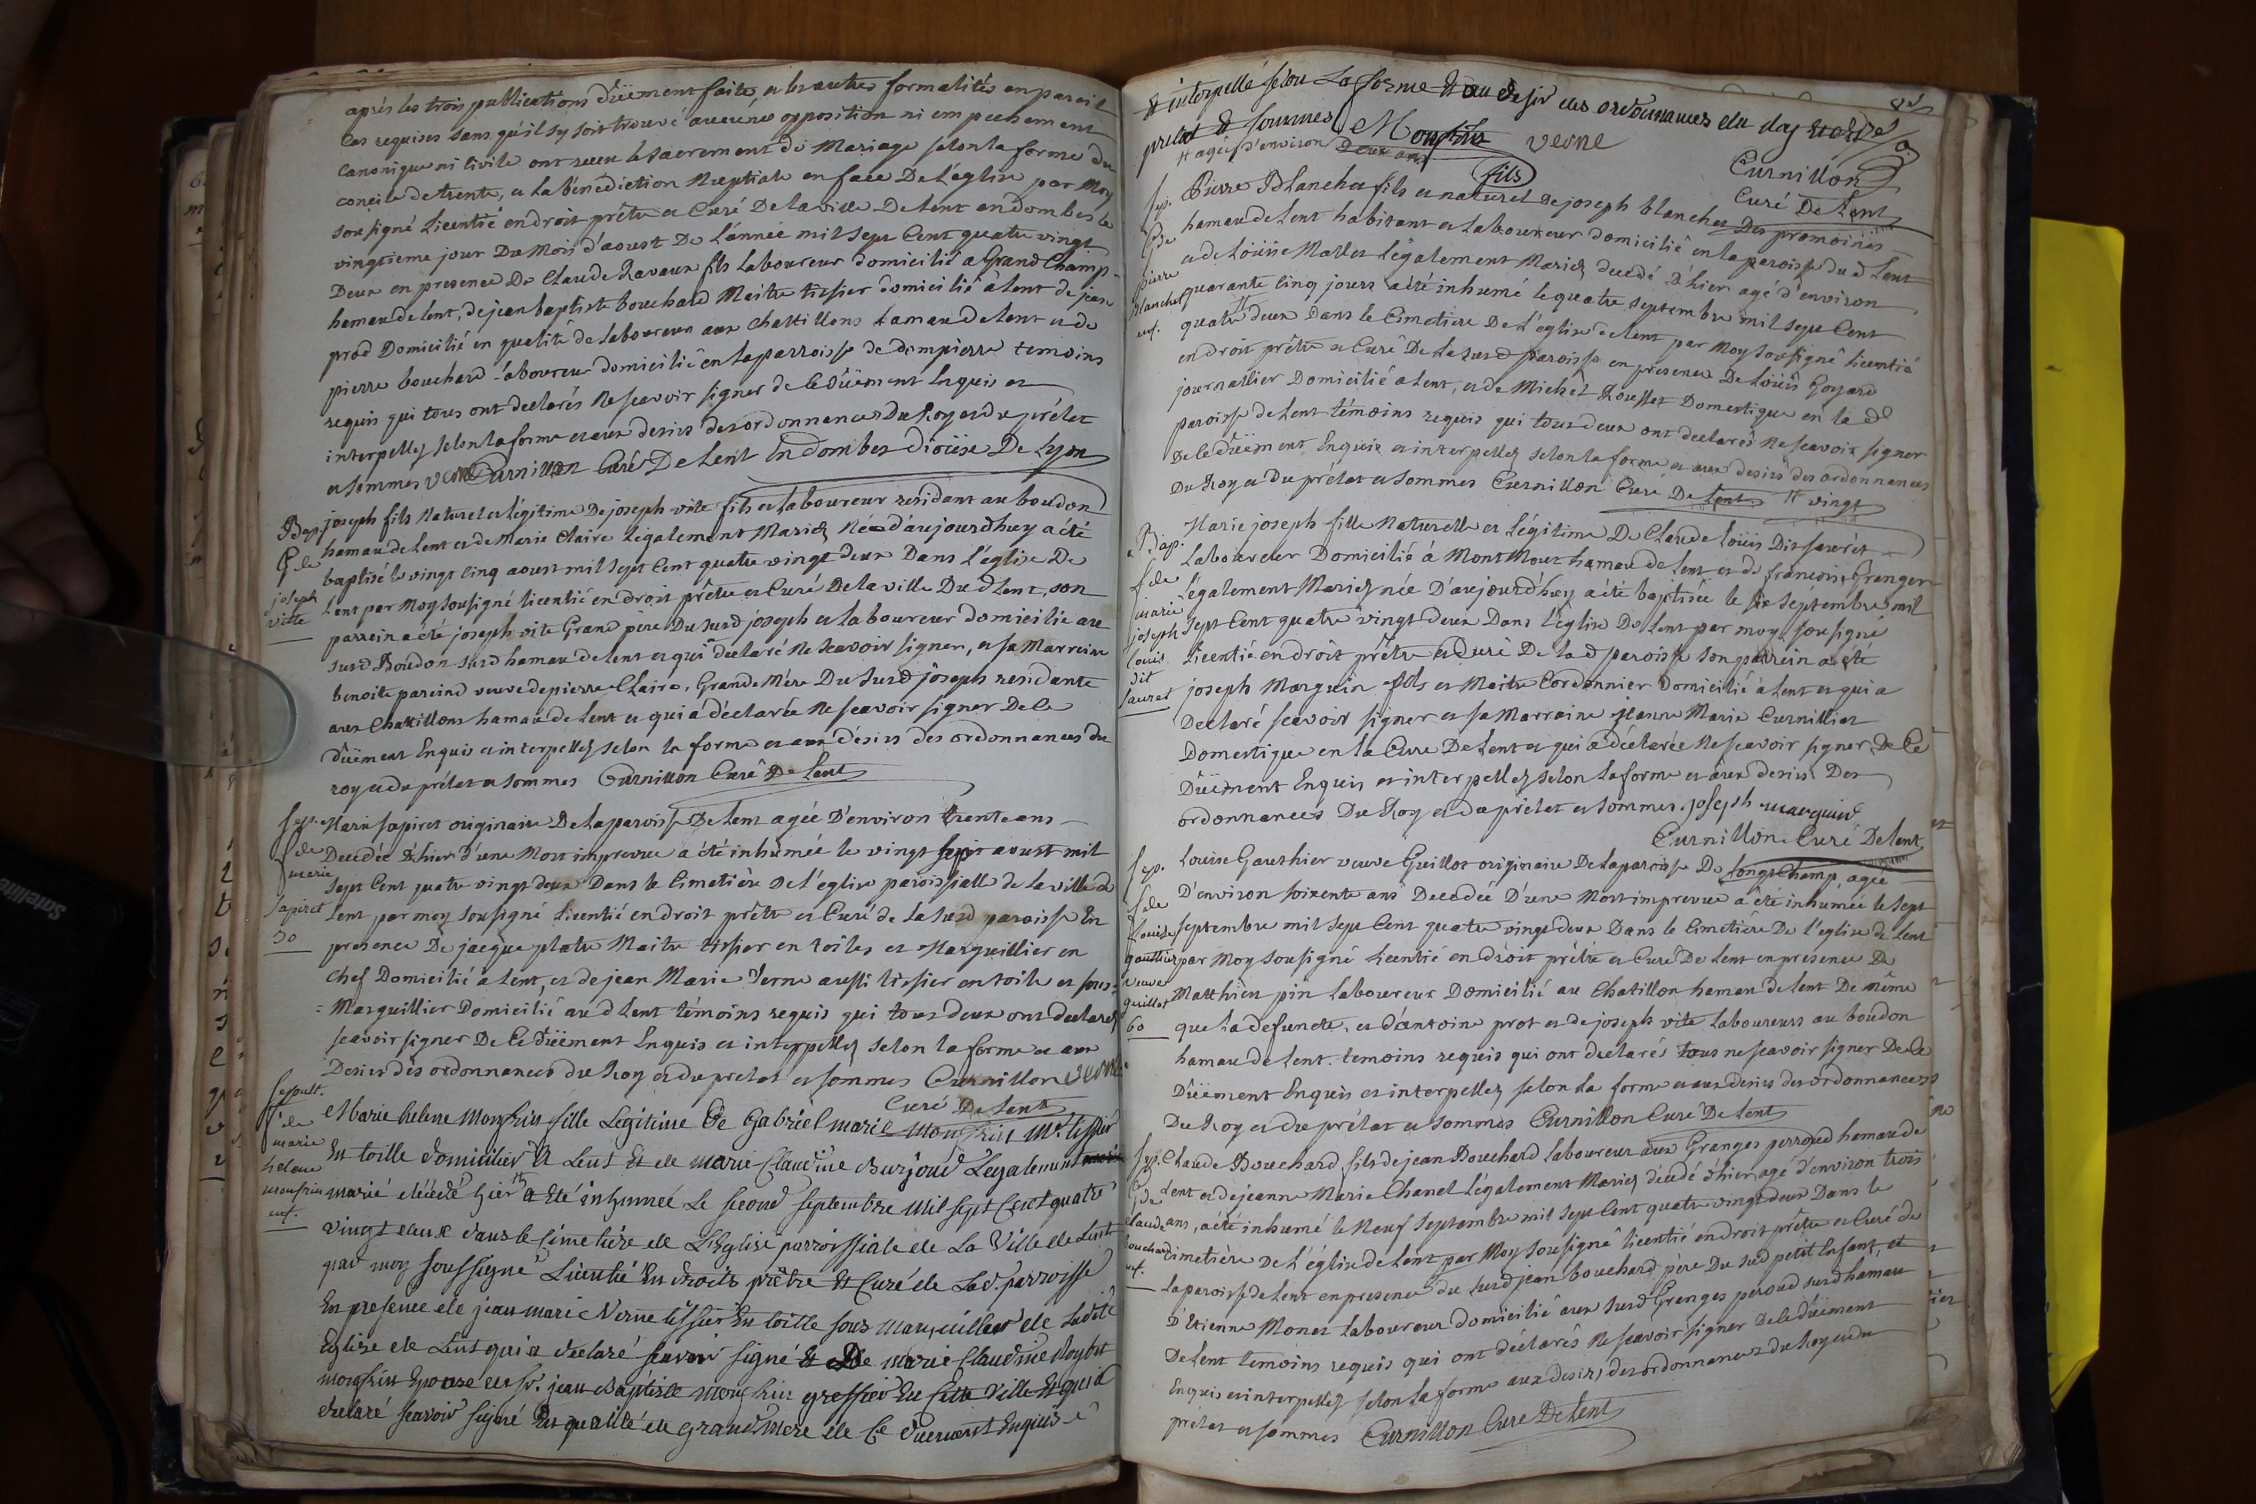 après les trois publications düement faites, et les autres formalités en pareil
Cas requises sans qu'il sy soit trouvé aucune opposition ni empechement
canonique ni civile ont reçu le sacrement de Mariage selon la forme du
concile de trente, et la bénediction Nuptiale en face De l'église par Moy
sousigné Licentié en droit prêtre et Curé De la ville De Lent en dombes le
vingtieme jour Du Mois d'aoust De l'année mil sept Cent quatre vingt
Deux en presence De Claude Ravaux fils Laboureur domicilié a Grand Champ
hameau de Lent, de jean baptiste bouchard Maitre tissier domicilié à Lent de jean
prod Domicilié en qualité de laboureur aux Chattillons hameau de Lent et de
pierre bouchard laboureur domicilié en la parroisse de dompierre temoins
requis qui tous ont declarés Ne scavoir signer de ce düement Enquis et
interpellez selon la forme et aux desirs des ordonnances du Roy et du prélat
et sommes verne Curnillon Curé De Lent En dombes diocèse De Lyon
Bap.
de
joseph
vitte
joseph fils Naturel et légitime De joseph vite fils et laboureur residant au boudon
hameau de Lent et de Marie Claire légalement Mariez Né d'aujourdhuy a été
baptisé le vingt Cinq aoust mil sept Cent quatre vingt deux Dans L'église De
Lent par Moy sousigné licentié en droit prêtre et Curé De la ville Du d Lent, son
parrein a été joseph vite Grand père Du susd joseph et laboureur domicilié au
susd Boudon susd hameau de Lent et qui a déclaré Ne Scavoir signer, et sa Marreine
benoite pareind veuve de pierre Claire, Grande Mère Du Susd joseph residante
aux Chattillons hameau de Lent et qui a déclarée Ne scavoir signer De Ce
düement Enquis et interpellez selon la forme et aux désirs des ordonnances du
roy et du prélat et sommes Curnillon Curé De Lent
Sep.
de
marie
sapiret
30
Marie sapiret originaire De la paroisse De Lent agée D'environ trente ans
Decedée d'hier d'une Mort imprevue a été inhumée le vingt sept aoust mil
sept Cent quatre vingt deux Dans le Cimetière De l'eglise paroissialle de la ville de
Lent par moy sousigné Licentié en droit prêtre et Curé de la susd paroisse En
presence De jacque platre Maitre tissier en toiles et Marguillier en
chef Domicilié a Lent, et de jean Marie Verne aussi tissier en toile et sous
= Marguillier Domicilié au d Lent témoins requis qui tous deux ont declarez
scavoir signer De Ce düement Enquis et interpellez selon la forme et aux
Desirs dès ordonnances du Roy et du prelat et sommes Curnillon verne
Curé De Lent
sepult.
de
marie
helene
monfrin
enf.
Marie helene Monfrin fille Legitime De Gabriel marie monfrin Mr. tissier
En toille domicilier A Lent Et de marie Claudine Burjoud Legalement
marié décédé hier a Eté inhumeé Le second septembre Mil sept Cent quatre
vingt deux dans le Cimetière de L'Eglise parroissiale de La Ville de Lent
par moy soussigné Licentié En droits prêtre Et Curé de Lad. parroisse
En presence de jean marie Verne tissier En toille sous marguillier de Ladite
Eglise de Lent qui a declaré scavoir signé Et De marie Claudine Roybet
monfrin Epouse du sr. jean Baptiste monfrin greffier En Cette Ville Et qui a
declaré scavoir signé En qualité de grand mere de Ce duement Enquis
& interpellé selon La forme Et au desir des ordonnances du Roy Et du
prelat & sommes Monfrin verne
fils
Curnillon
Curé De Lent
# agée d'environ Deux ans
Sep.
de
pierre
blanchet
enf.
Pierre Blanchet fils et naturel de joseph blanchet Des promoines
hameau de Lent habitant et laboureur domicilié en la paroisse du d Lent
et de Loüise Mallet Légalement Mariez decedé d'hier agé d'environ
quarante Cinq jours a été inhumé le quatre septembre mil sept Cent
quatre # deux Dans le Cimetiere De l'eglise de Lent par Moy Sousigné licentié
en droit prêtre et Curé De La susd paroisse en presence De Loüis Goyard
journallier Domicilié a Lent, et de Michel Rousset Domestique en la d
paroisse de Lent témoins requis qui tous deux ont declarés Ne scavoir signer
De Ce düement Enquis et interpellez selon la forme et aux desirs des ordonnances
Du Roy et du prélat et sommes Curnillon Curé De Lent # vingt
Bap.
de
marie
joseph
Louis
dit
sauret
Marie joseph fille Naturelle et légitime De Claude Loüis Dit sauret
Laboureur Domicilié à Mont Mour hameau de Lent et de francoise Granger
légalement Mariez née D'aujourd'huy a été baptisée le six septembre mil
sept Cent quatre vingt deux Dans l'église De Lent par moy sousigné
Licentié en droit prêtre et Curé De la d paroisse son parrein a été
joseph Marguin fils et Maitre Cordonnier Domicilié à Lent et qui a
Declaré scavoir signer et sa Marraine jeanne Marie Curnillier
Domestique en la Cure De Lent et qui a déclarée Ne scavoir signer De Ce
Düement Enquis et interpellez selon la forme et aux desirs Des
ordonnances Du Roy et du prélat et sommes joseph marguind
Curnillon Curé De Lent
Sep.
de
Louise
gauthier
veuve
guillot
60
Louise Gauthier veuve Guillot originaire De la paroisse De Longchamp agée
D'environ soixente ans Decedée D'une Mort imprevue a été inhumée le sept
septembre mil sept Cent quatre vingt deux Dans le Cimetiére De l'eglise de Lent
par Moy sousigné licentié en droit prêtre et Curé De Lent en presence De
Matthieu pin laboureur Domicilié au Chatillon hameau de Lent De même
que la defuncte, et d'antoine prot et de joseph vite laboureurs au boudon
hameau de Lent temoins requis qui ont declarés tous ne scavoir signer De Ce
Düement Enquis et interpellez selon La forme et aux desirs des ordonnances
Du Roy et du prélat et sommes Curnillon Curé De Lent
Sep.
de
Claude
bouchard
enf.
Claude Bouchard fils de jean Bouchard laboureur aux Granges perroud hameau de
Lent et de jeanne Marie Chanel légalement Mariez decedé d'hier agé d'environ trois
ans, a été inhumé le Neuf septembre mil sept Cent quatre vingt deux Dans le
Cimetière De l'église de Lent par Moy sousigné licentié en droit prêtre et Curé de
la paroisse de Lent en presence du susd jean bouchard père Du susd petit Enfant, et
D'étienne Monet laboureur domicilié aux susd Granges peroud susd hameau
De Lent temoins requis qui ont déclarés Ne scavoir signer De Ce düement
Enquis et interpellez selon la forme aux desirs des ordonnances du Roy et du
prelat et sommes Curnillon Curé De Lent